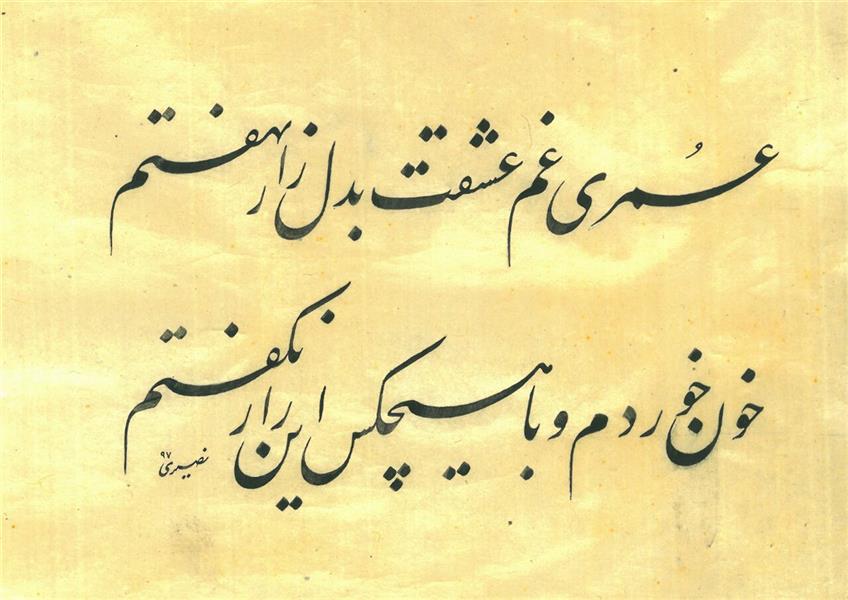 عُمری غم عشقت بدل زار نهفتم
خون خوردم و با هیچکس این راز نگفتم
نصیری ۹۷